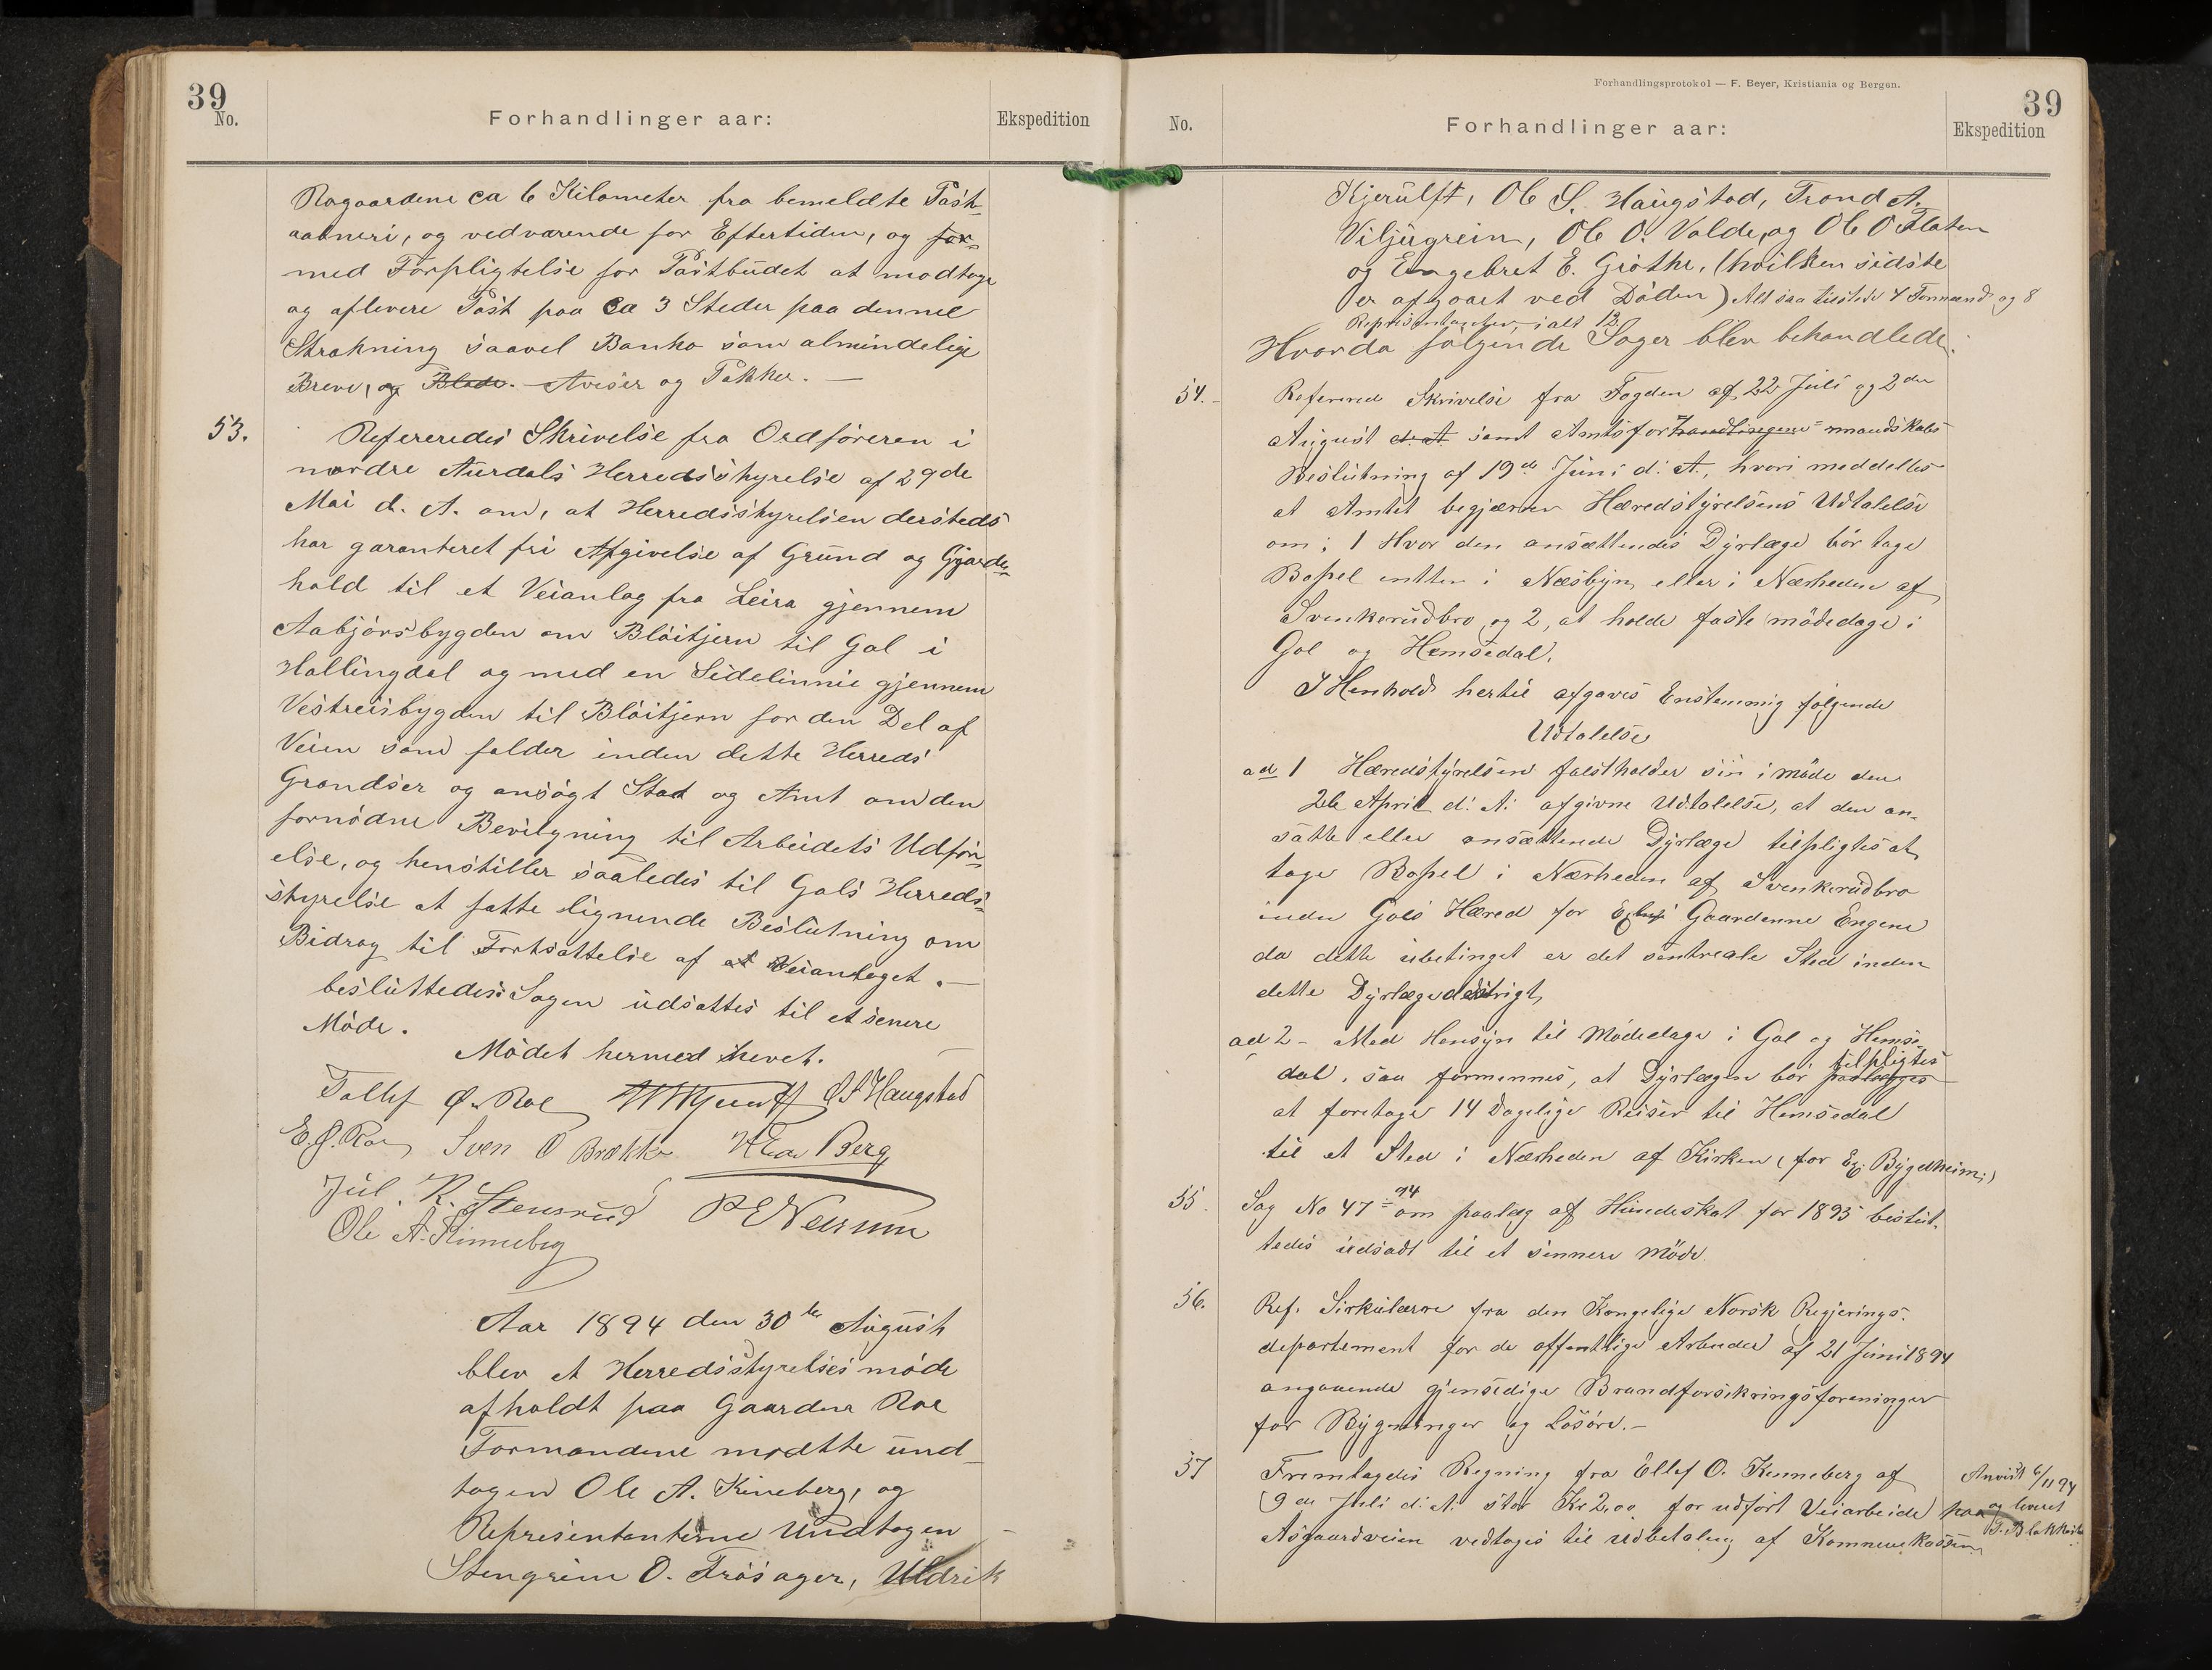 39
No.
Forhandlinger aar:
Ekspedition
Rogaardene ca 6 Kilometer fra bemeldte Post-
aabneri, og vedvarende for Eftertiden, og for-
med Forpligtelse for Postbudet at modtage
og aflevere Post paa ca 3 Steder paa denne
Strækning saavel Banko som almindelige
Breve, og Blade. Aviser og Pakker. —
53.
Refereredes Skrivelse fra Ordføreren i
nordre Aurdals Herredsstyrelse af 29de
Mai d. A. om, at Herredsstyrelsen dersteds
har garanteret fri Afgivelse af Grund og Gjærde-
hold til et Veianlæg fra Leira gjennem
Aabjørsbygden om Bløitjern til Gol i
Hallingdal og med en Sidelinnie gjennem
Vestreisbygden til Bløitjern for den Del af
Veien som falder inden dette Herreds
Grændser og ansøgt Stat og Amt om den
fornødne Bevilgning til Arbeidets Udfør-
else, og henstiller saaledes til Gols Herreds-
styrelse at fatte lignende Beslutning om
Bidrag til Fortsættelse af at Veianlæget. —
besluttedes: Sagen udsættes til et senere
Møde.
Mødet hermed hevet. —
Tollef Ø. Roe O S Haugstad
E. O. Roe Sven O Brække Berg
Jul. R. Stensrud
Ole A. Kinneberg
Aar 1894 den 30te August
blev et Herredsstyrelsesmøde
afholdt paa Gaarden Roe
Formændene mødtte und-
tagen Ole A. Kineberg, og
Representanterne Undtagen
Stengrim O. Trøsager, Uldrik
Forhandlingsprotokol — F. Beyer, Kristiania og Bergen.
39
No.
Forhandlinger aar:
Ekspedition
Kjerulff, Ole S. Haugstad, Trond A.
Viljugrein, Ole O. Volde, og Ole O Flaten
og Engebret E. Grøthe, (hvilken sidste
er afgaaet ved Døden) Alt saa tilstede 4 Formænd og 8
Representanter, ialt 12.
Hvorda følgende Sager blev behandlede:
54. -
Refereret Skrivelse fra Fogden af 22 Juli og 2den
August d. A samt Amtsforhandlingene- mandskabs
Beslutning af 19de Juni d. A., hvori meddeltes
at Amtet begjærer Hæredstyrelsens Udtalelse
om: 1 Hvor den ansættendes Dyrlæge bør tage
Bopel entten i Næsbyn eller i Nærheden af
Svenkerudbro og 2, at holde faste mødedage i
Gol og Hemsedal.
I Henhold hertil afgaves Enstemmig følgende
Udtalelse
ad 1 Hæredstyrelsen fastholder sin i møde den
26 April d. A. afgivne Udtalelse, at den an-
satte eller ansættende Dyrlæge tilpligtes at
tage Bopel i Nærheden af Svenkerudbro
inden Gols Hæred for Gaardenne Engene
da dette ubetinget er det sentreale Sted inden
dette Dyrlægedistrigt,
ad 2 - Med Hensyn til Mødedage i Gol og Hemse-
dal, saa formennes, at Dyrlægen bør paalægges tilpligtes
at foretage 14 Dagelige Reiser til Hemsedal
til et Sted i Nærheden af Kirken (for Ex. Bygdheim.)
55.
Sag No 47 - 94 om paalæg af Hundeskat for 1895 beslut-
tedes udsadt til et sennere Møde.
56.
Ref. Sirkulærre fra den Kongelige Norsk Regjerings-
departement for de offentlige Arbeider af 21 Juni 1894
angaaende gjensidige Brandforsikringsforeninger
for Bygninger og Løsøre. -
57
Fremlagdes Regning fra Ellef O. Kinneberg af
9de Juli d. A. stor Kr 2,00 for udført Veiarbeide paa
Aasgaardveien vedtoges til udbetaling af Kommunekassen
Anvist 6/11 94
og leveret
T. Blakkestad